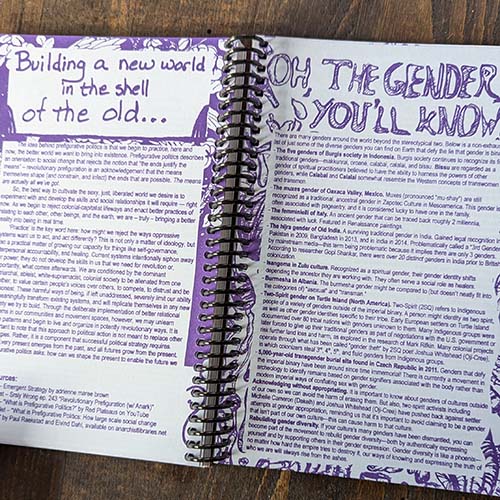 Building a new world
in the shell
of the old...
The idea behind prefigurative politics is that we begin to practice, here and
now, the better world we want to bring into existence. Prefigurative politics describes
an orientation to social change that rejects the notion that "the ends justify the
means" – revolutionary prefiguration is an acknowledgement that the means
themselves shape (and constrain, and infect) the ends that are possible. The means
are actually all we've got.
So, the best way to cultivate the sexy, just, liberated world we desire is to
experiment with and develop the skills and social relationships it will require – right
now. As we begin to reject colonial-capitalist lifeways and enact better practices of
relating to each other, other beings, and the earth, we are – truly – bringing a better
reality into being in real time.
'Practice' is the key word here: how might we reject the oppressive
ways we learn us to act, and act differently? This is not only a matter of ideology, but
a practical matter of growing our capacity for things like self-governance,
interpersonal accountability, and healing. Current systems intentionally siphon away
our power; they do not develop the skills in us that we need for revolution or,
importantly, what comes afterwards. We are conditioned by the dominant,
patriarchal, ableist, white-supremacist, colonial society to be alienated from one
another, to value certain people's voices over others, to compete, to distrust and be
cruel. These harmful ways of being, if left unaddressed, severely limit our ability
to meaningfully transform existing systems, and will replicate themselves in any new
world we try to build. Through the deliberate implementation of better relational
patterns in our communities and movement spaces, however, we may unlearn
domination and begin to live and organize in potently revolutionary ways. It is
important to note that this approach to political action is not meant to replace other
strategies. Rather, it is a component that successful political strategy requires:
every present emerges from the past, and all futures grow from the present.
Prefigurative politics asks, how can we shape the present to enable the future we
Sources:
- Emergent Strategy by adrienne maree brown
- Srsly Wrong ep. 243 "Revolutionary Prefiguration (w/ Anark)"
- "What is Prefigurative Politics?" by Red Plateaus on YouTube
- "What is Prefigurative Politics? How large scale social change
" by Paul Raekstad and Eivind Dahl, available on anarchistlibraries.net
OH, THE GENDERS
YOU'LL KNOW
There are many genders around the world beyond the stereotypical two. Below is a non-exhaustive
list of just some of the diverse genders you can find on Earth that defy the lie that gender is binary
The five genders of Bugis society in Indonesia. Bugis society continues to recognize its
traditional genders–makkunrai, oroané, calabai, calalai, and bissu. Bissu are regarded as
gender of spiritual practitioners believed to have the ability to harness the power of the
others, while Calabai and Calalai somewhat resemble the Western concepts of transwoman
and transman.
The muxes gender of Oaxaca Valley, Mexico. Muxes (pronounced "mu-shay") are still
recognized as a traditional, ancestral gender in Zapotec Culture in Mesoamerica. This gender is
often associated with longevity, and it's considered lucky to have one in the family.
The femminielli of Italy. An ancient gender that can be traced back roughly 2 millennia
associated with luck. Featured in Renaissance paintings.
The hijra gender of Old India. A surviving traditional gender in India. Gained legal recognition in
Pakistan in 2009, Bangladesh in 2013, and in India in 2014. Problematically called a "3rd Gender"
by mainstream media–this term being problematic because it implies there are only 3 genders.
According to researcher Gopi Shankar, there were over 20 distinct genders in India prior to British
colonization
in Zulu culture. Recognized as a spiritual gender, their gender identity shifts
depending the ancestor they are working with. They often serve a social role as healers.
Burrnesha in Albania. The burrnesha gender might be compared to (but doesn't neatly fit into
the categories of) "bisexual" and "transman."
Two-Spirit gender on Turtle Island (North America). Two-Spirit (2SQ) refers to Indigenous
people of a variety of genders outside of the imperial binary. A person might identify as two-spirit
as well as other gender identities specific to their tribe. Early European settlers on Turtle Island
documented over 80 tribal nations with genders unknown to them. Many Indigenous groups were
later forced to give up their traditional genders as part of negotiations with the U.S. government to
operate lumber and fish farms, as explored in the research of Mark Rifkin. Colonial efforts to wipe
out Indigenous ways are what were called "gender theft" by 2SQ poet Joshua Whitehead (Oji-Cree),
which conceals real 3º, 4º, 5º, and fluid genders from Indigenous groups.
4,000-year-old transgender burial site found in Czech Republic in 2011. Genders that defy
the imperial binary have been around since time immemorial! There is currently a movement in
archeology to study identities based on gender signifiers associated with the body rather than
modern imperial ways of conflating sex with gender.
Acknowledging without appropriating. It is important to know about genders of cultures outside
of our own so we can avoid the harm of erasing them. But also, two-spirit activists including
Michelle Cameron (Dakelh) and Joshua Whitehead (Oji-Cree) have pushed back against settler
attempts at gender appropriation, reminding us that it's important to avoid claiming to be a gender
that isn't part of our own culture—this can cause harm to that culture.
Rebuilding gender diversity. If your culture's many genders have been dismantled, you can
become part of the movement to rebuild gender diversity—both by authentically expressing
yourself and by supporting others in their gender expression. Gender diversity is like a phoenix—
no matter how hard the empire tries to destroy it, our ways of knowing and expressing the truth of
who we are will always rise from the ashes.